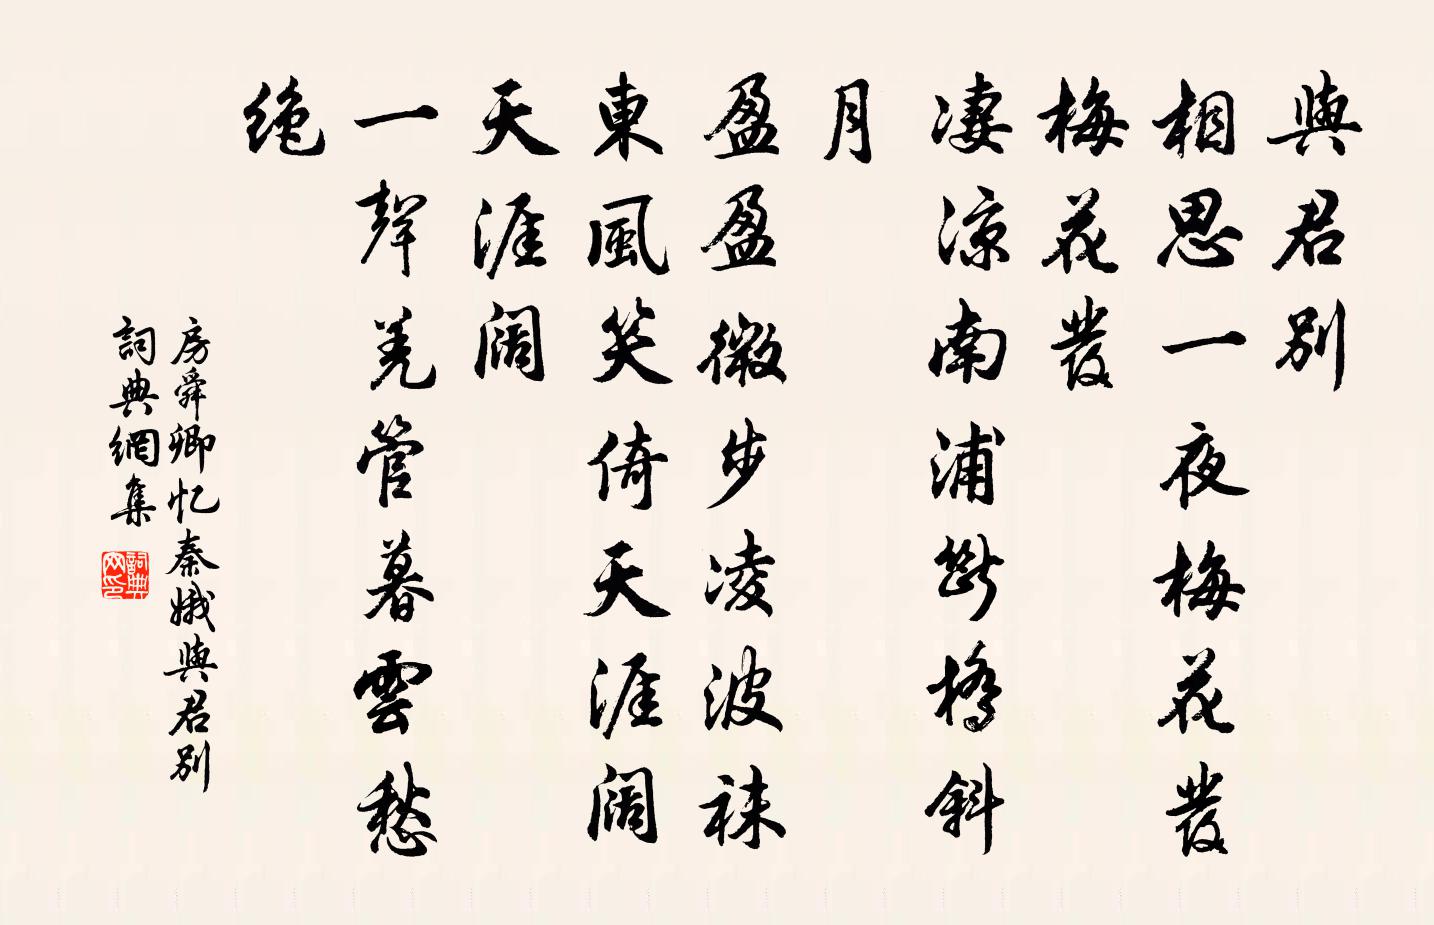 與君別
相思一夜梅花發
梅花發
淒涼南浦斷橋斜
月
盈盈微步凌波袜
東風笑倚天涯闊
天涯闊
一聲羌管暮雲愁
绝
房舜卿忆秦娥與君别
詞典網集
詞典网印